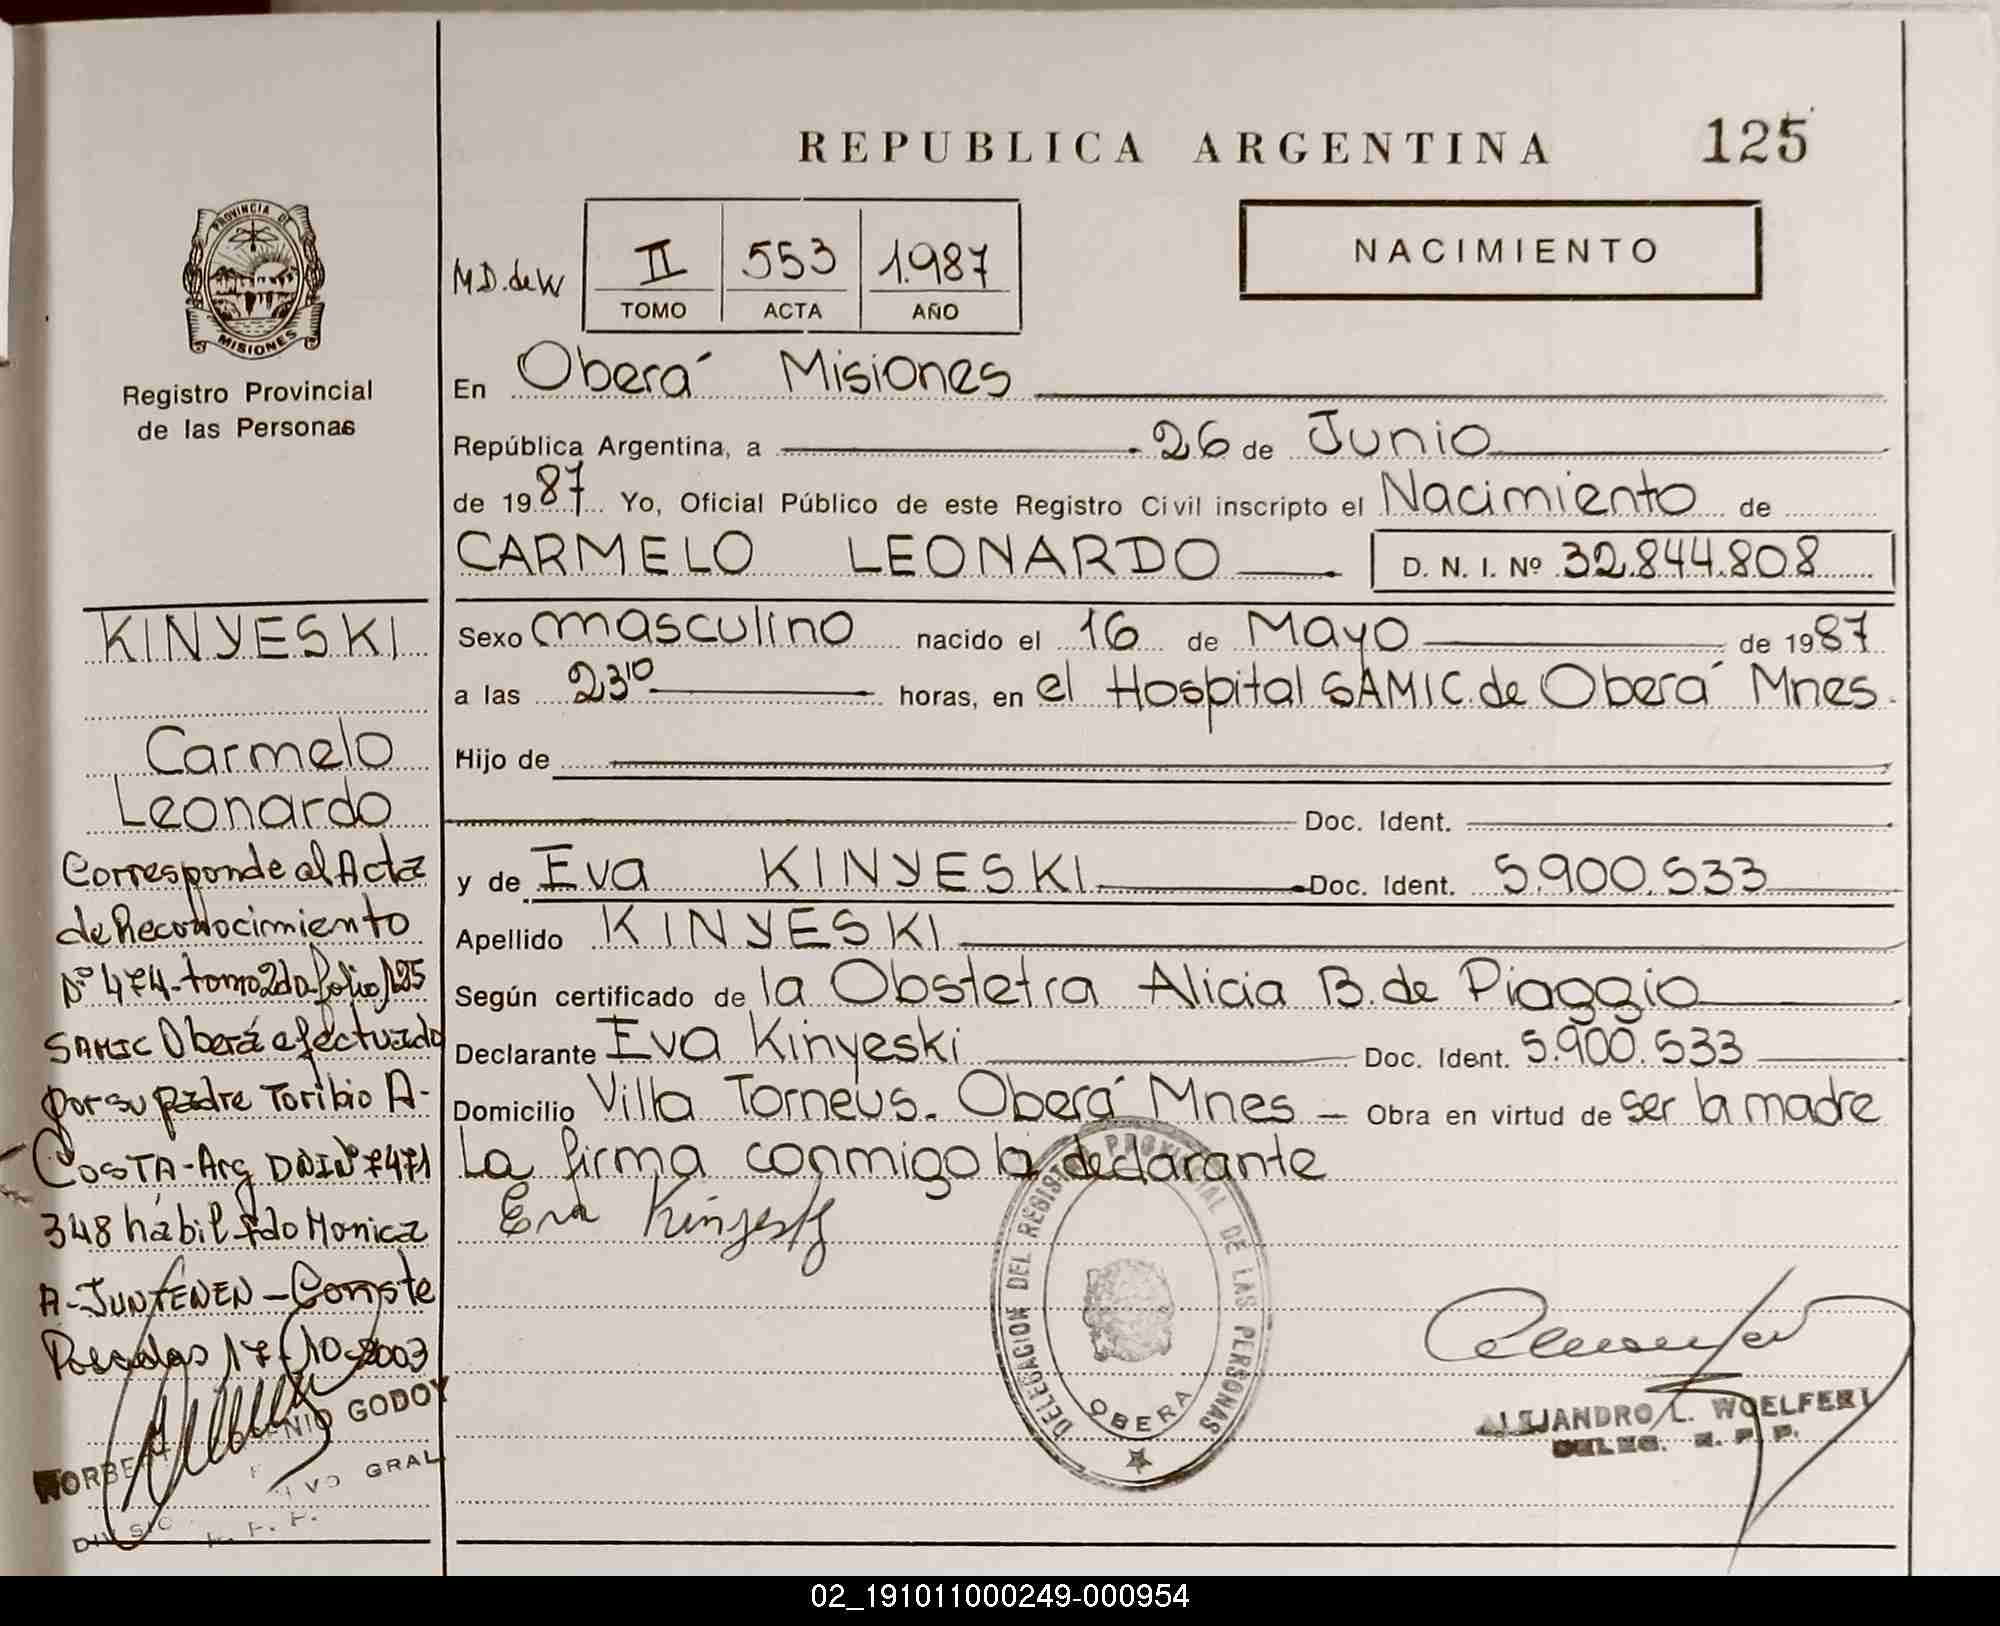 REPUBLICA ARGENTINA 125
PROVINCIA DE
MISIONES
Registro Provincial
de las Personas
M.D. de W
II 553 1.987
TOMO ACTA AÑO
NACIMIENTO
En Oberá Misiones
República Argentina, a 26 de Junio
de 1987 Yo, Oficial Público de este Registro Civil inscripto el Nacimiento de
CARMELO LEONARDO D. N. I. Nº 32.844.808
Sexo masculino nacido el 16 de Mayo de 1987
a las 23¹⁰ horas, en el Hospital SAMIC. de Oberá Mnes.
Hijo de
Doc. Ident.
y de Eva KINYESKI Doc. Ident. 5.900.533
Apellido KINYESKI
Según certificado de la Obstetra Alicia B. de Piaggio
Declarante Eva Kinyeski Doc. Ident. 5.900.533
Domicilio Villa Torneus. Oberá Mnes – Obra en virtud de ser la madre
La firma conmigo la declarante
Eva Kinyesky
DELEGACION DEL REGISTRO PROVINCIAL DE LAS PERSONAS
OBERA
ALEJANDRO L. WOELFERT
DELEG. R. P. P.
KINYESKI
Carmelo
Leonardo
Corresponde al Acta
de Reconocimiento
Nº 474-tomo 2do folio 125
SAMIC Oberá efectuado
por su padre Toribio A-
COSTA-Arg DNI Nº 7471
348 hábil fdo Monica
A-JUNFENEN-Conste
Posadas 17-10-2003
GODOY
GRAL
02_191011000249-000954